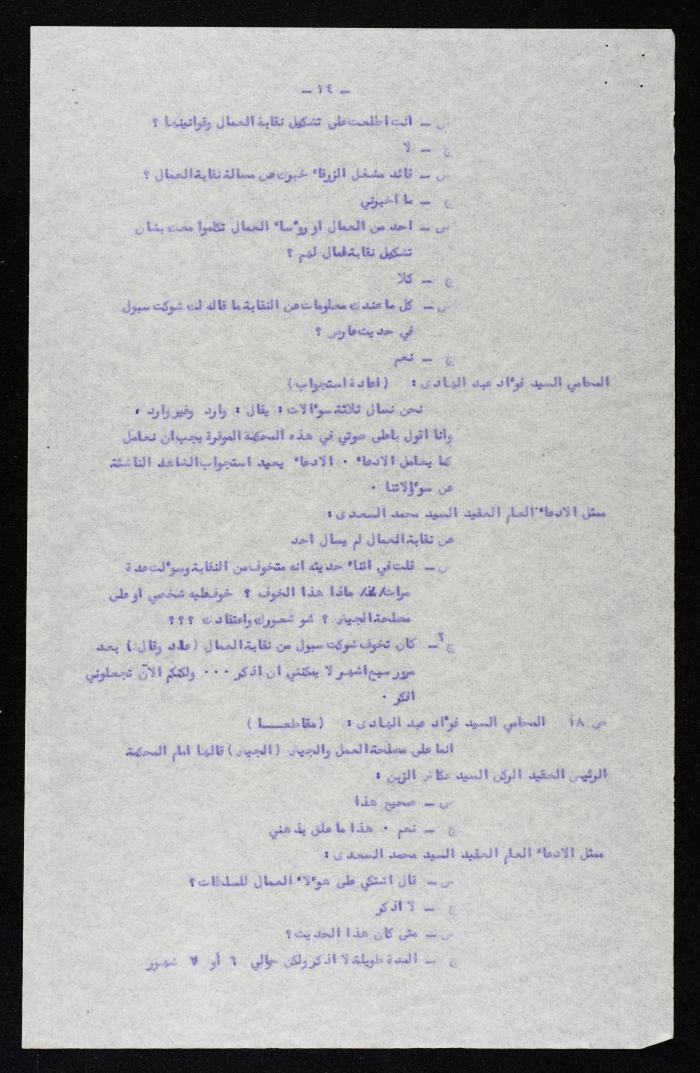 - ١٤ -
س - انت اطلعت على تشكيل نقابة العمال وقوانينها ؟
ج - لا
س - قائد مشغل الزرقاء خبرك عن مسالة نقابة العمال ؟
ج - ما اخبرني
س - احد من العمال او روءساء العمال تكلموا معك بشان
تشكيل نقابة عمال لهم ؟
ج - كلا
س - كل ما عندك معلومات عن النقابة ما قاله لك شوكت سبول
في حديث عارض ؟
ج - نعم
المحامي السيد فوءاد عبد الهادى : (اعادة استجواب)
نحن نسال ثلاثة سوءالات : يقال : وارد وغير وارد ،
وانا اقول باعلى صوتي في هذه المحكمة الموقرة يجب ان نعامل
كما يعامل الادعاء . الادعاء يعيد استجواب الشاهد الناشئة
عن سوءالاتنا .
ممثل الادعاء العام العقيد السيد محمد السعدى :
عن نقابة العمال لم يسال احد
س - قلت في اثناء حديثه انه متخوف من النقابة وسوءلت عدة
مرات ماذا هذا الخوف ؟ خوف عليه شخصي او على
مصلحة الجيش ؟ شو شعورك واعتقادك ؟؟؟
ج - كان تخوف شوكت سبول من نقابة العمال (عاد وقال:) بعد
مرور سبع اشهر لا يمكنني ان اذكر ... ولكنكم الآن تجعلوني
افكر .
ص ١٨ المحامي السيد فوءاد عبد الهادى : (مقاطعـــا)
انما على مصلحة العمل والجيش (الجيش) قالها امام المحكمة
الرئيس العقيد الركن السيد عكاش الزبن :
س - صحيح هذا
ج - نعم . هذا ما علق بذهني
ممثل الادعاء العام العقيد السيد محمد السعدى :
س - قال اشتكي على هوءلاء العمال للسلطات ؟
ج - لا اذكر
س - متى كان هذا الحديث ؟
ج - المدة طويلة لا اذكر ولكن حوالي ٦ أو ٧ شهور